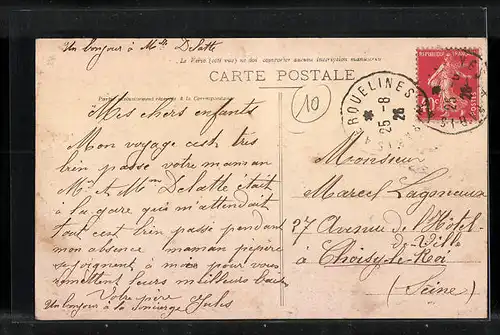 Un bonjour à Mlle Delatte
Le Verso (côté vue) ne doit comporter aucune Inscription manuscrite
CARTE POSTALE
Partie exclusivement réservée à la Correspondance
10
ROUELINES
25-8
26
Mes chers enfants
Mon voyage c'est très
bien passé votre maman
Mr et Mme Delatte était
à la gare qui m'attendait
tout c'est bien passé pendant
mon absence maman pépère
se joignent à moi pour vous
remettent leurs meilleurs bais
Votre père
Jules
Un bonjour à la concierge
Monsieur
Marcel
37 Avenue de l'Hôtel
de Ville
à Choisy-le-Roi
(Seine)